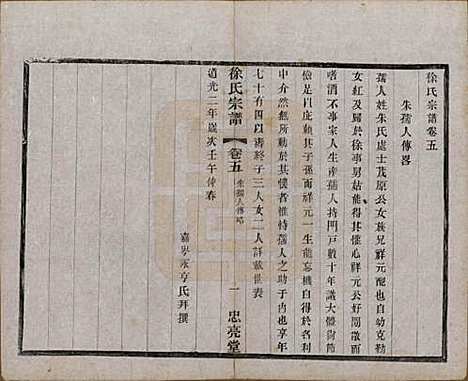 徐氏宗譜卷五
朱孺人傳畧
孺人姓朱氏處士茂原公女族兄祥元配也自幼克勤
女紅及歸於徐事舅姑能得其歡心祥元公好閒散而
嗜酒不事家人生產孺人持門戶數十年識大體尚節
儉是以庇賴其子孫而祥元一生能忘機自得於山水
中介然無所動於其懷者惟恃孺人之助于内也享年
七十有四以壽終子三人女二人詳載世表
道光二年歲次壬午仲春
嘉岁永亨氏拜撰
徐氏宗譜
卷五
朱孺人傳略
一
忠亮堂